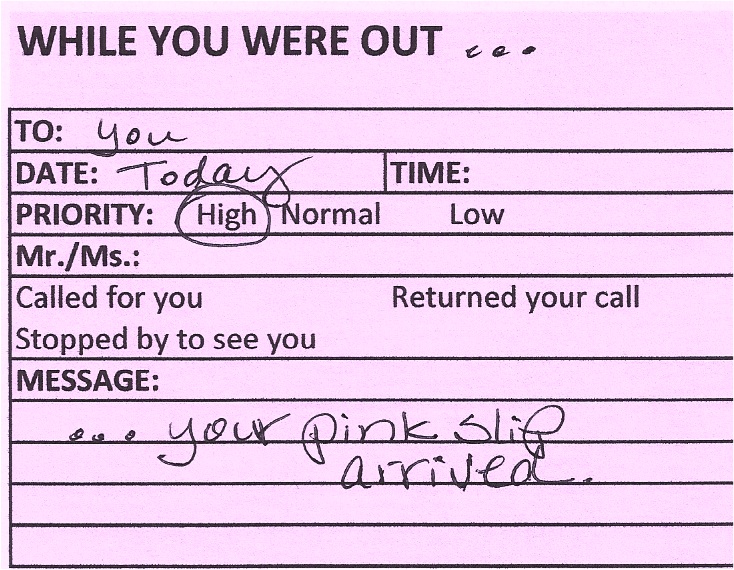 WHILE YOU WERE OUT ...
TO: you
DATE: Today TIME:
PRIORITY: High Normal Low
Mr./Ms.:
Called for you Returned your call
Stopped by to see you
MESSAGE:
... your pink slip
arrived.